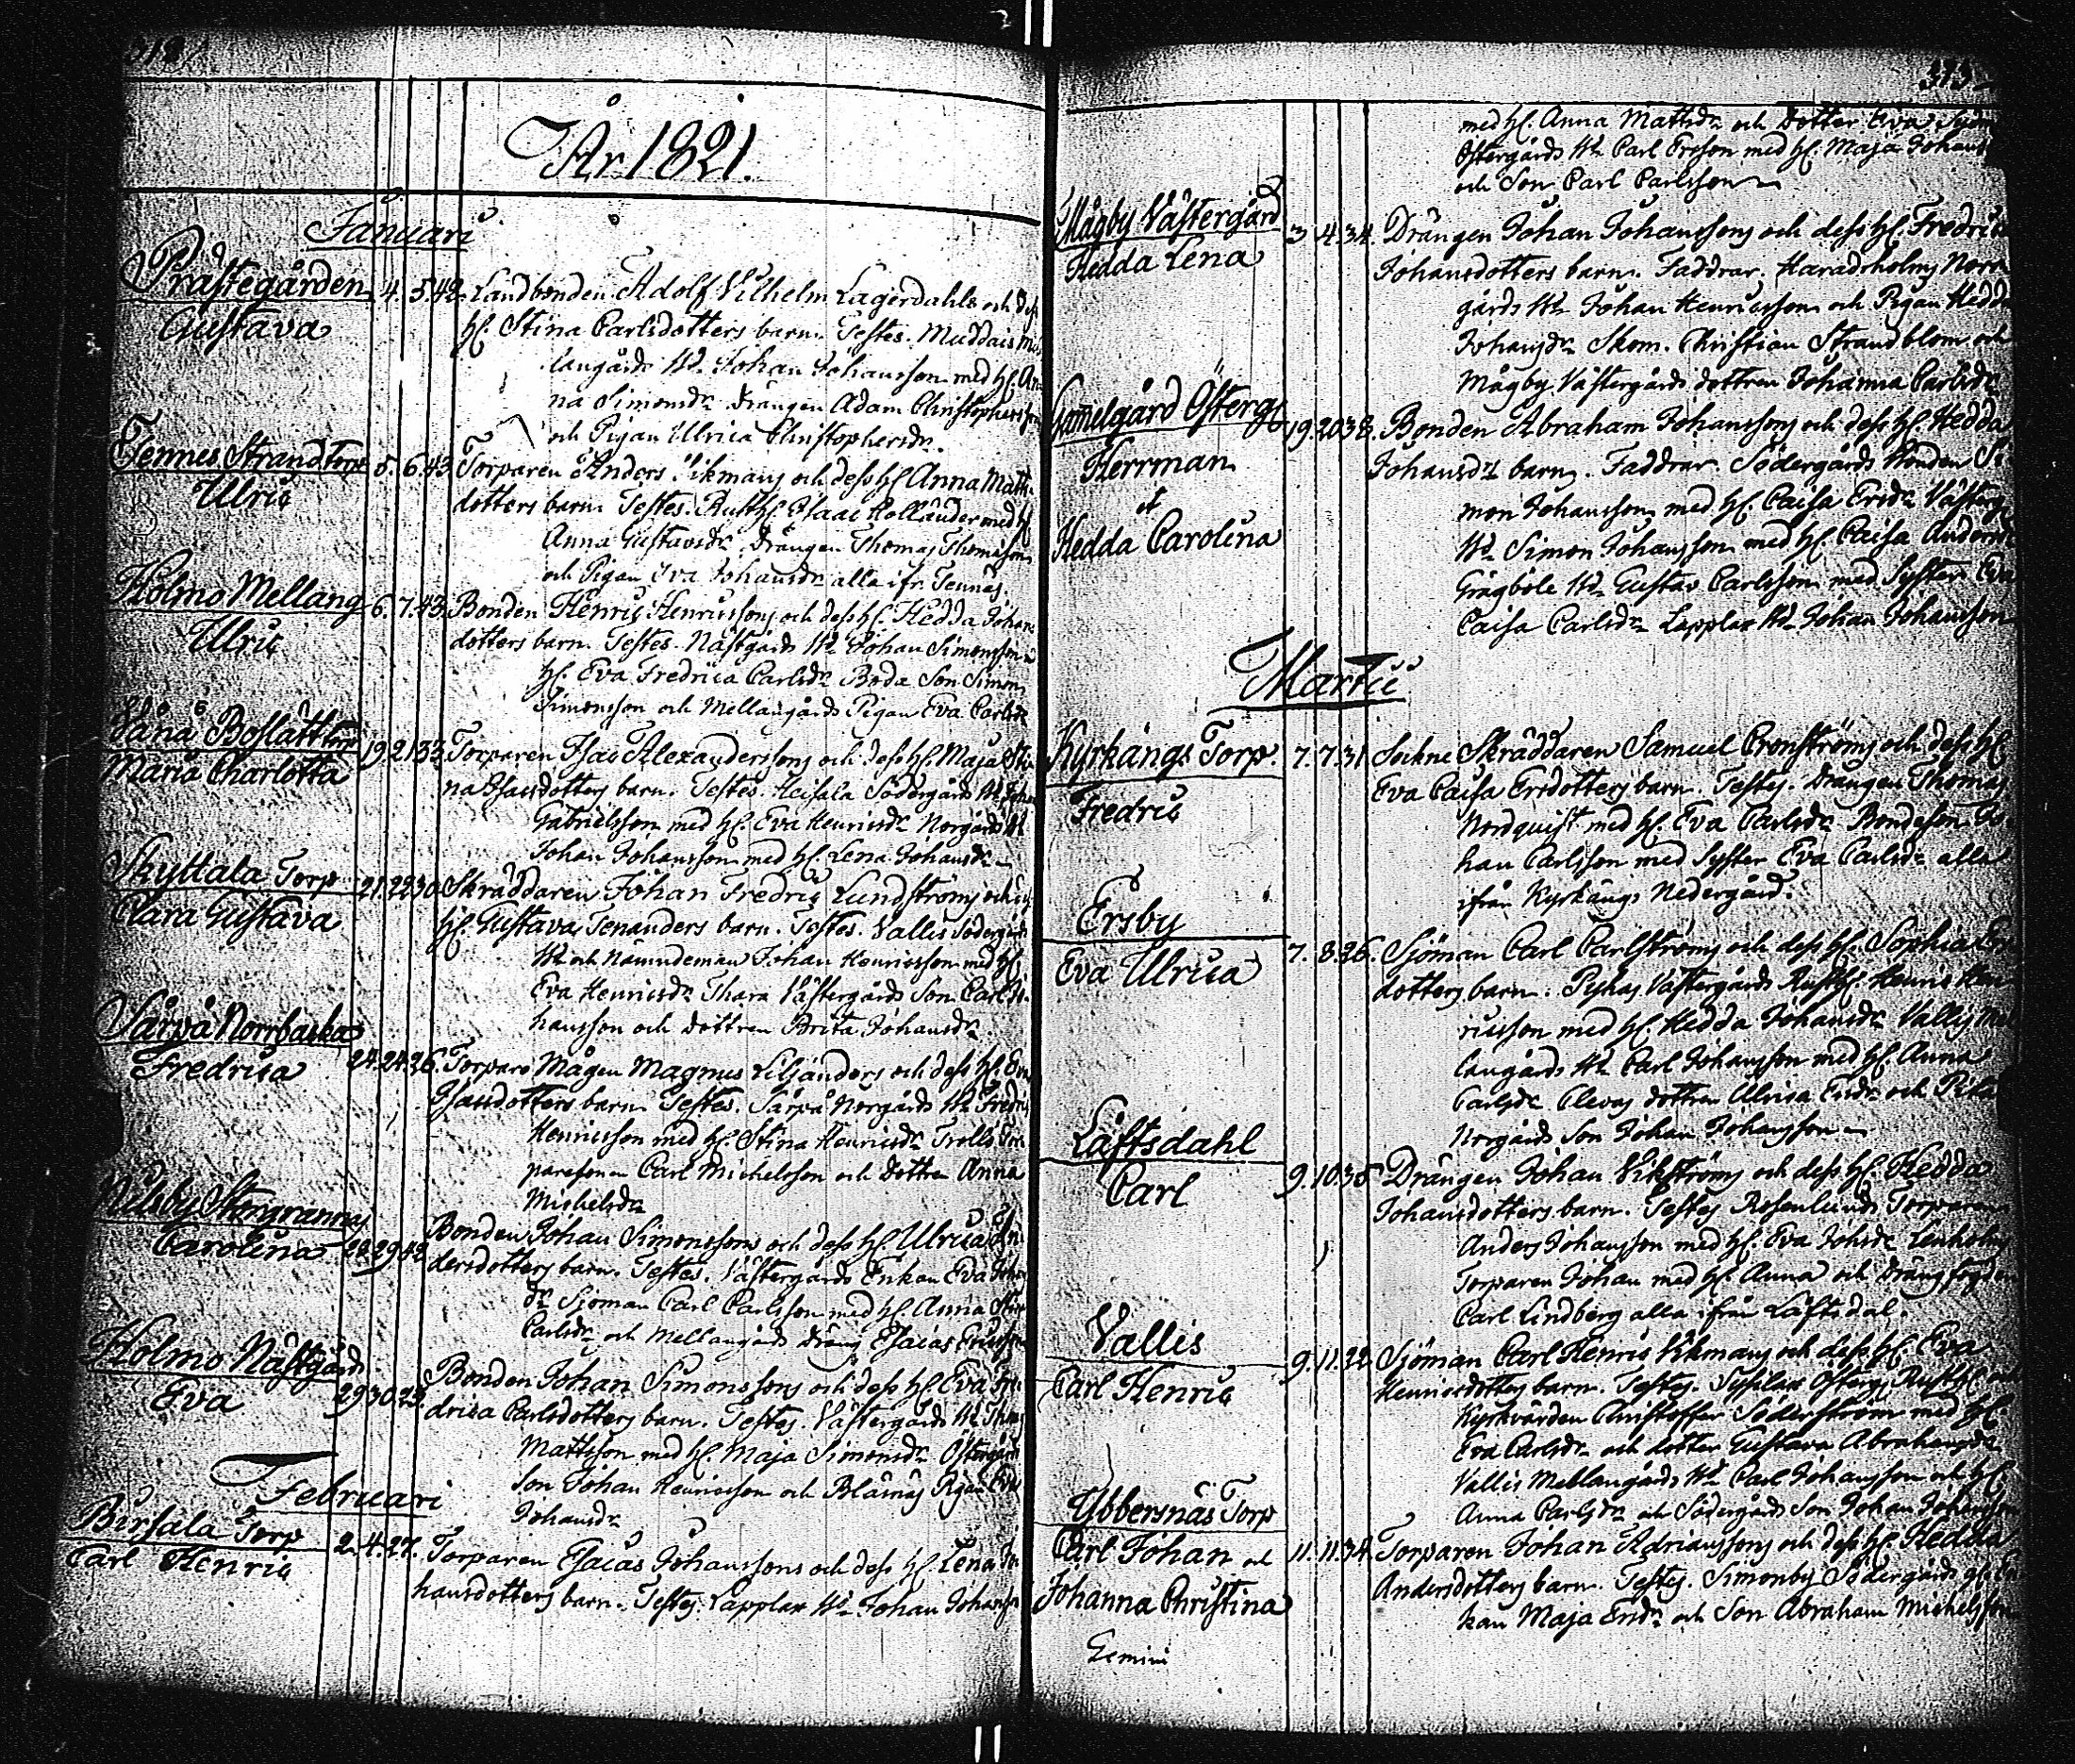 År 1821.
Januari
Prästegården 4. 5. 42. Landbonden Adolf Vilhelm Lagerdahls och dess
Gustava
hl. Stina Carlsdotters barn. Testes. Muddais Mel
langårds Wd. Johan Johansson med hl. An
na Simonsdr. Drängen Adam Christophersson
och Pigan Ulrica Christophersdr.
Tennes Strand Torp 5. 6. 43. Torparen Anders Vikmans och dess hl. Anna Matts
Ulric
dotters barn. Testes. Rusth. Isaac Holländer med hl.
Anna Gustavsdr. Drängen Thomas Thomasson
och Pigan Eva Johansdr. alla ifr. Tennäs.
Holmo Mellang. 6. 7. 43. Bonden Henric Henricssons och dess hl. Hedda Johans
Ulric
dotters barn. Testes. Nästgårds Wd. Johan Simonsson
hl. Eva Fredrica Carlsdr. Boda Son Simon
Simonsson och Mellangårds Pigan Eva Carlsdr.
Vånå Boslätt torp 19. 21. 33. Torparen Isac Alexanderssons och dess hl. Maja Sti
Maria Charlotta
na Isacsdotters barn. Testes. Heisala Södergårds Wd. Johan
Gabrielsson med hl. Eva Henricsdr. Norgårds Wd.
Johan Johansson med hl. Lena Johansdr.
Skyttala Torp 21. 22. 30. Skräddaren Johan Fredric Lundströms och
Clara Gustava
hl. Gustava Tenanders barn. Testes. Vallis Södergårds
Wd. och Nämndeman Johan Henricsson med hl.
Eva Henricsdr. Thara Västergårds Son Carl Jo
hansson och dottren Brita Johansdr.
Särpå Norrbacka
Fredrica 24. 24. 26. Torpare Mågen Magnus Liljanders och dess hl. Eva
Isacsdotters barn. Testes. Särpå Norgårds Wd. Fredric
Henricsson med hl. Stina Henricsdr. Trolls Tor
paresonen Carl Michelsson och dottren Anna
Michelsdr.
Nilsby Storgrannas
Carolina 28. 29. 42. Bonden Johan Simonssons och dess hl. Ulrica An
dersdotters barn. Testes. Västergårds Enkan Eva Johans
dr. Sjöman Carl Carlsson med hl. Anna Stina
Carlsdr. och Mellangårds Dräng Esaias Ericsson
Holmo Nästgård
Eva 29. 30. 23. Bonden Johan Simonssons och dess hl. Eva Fre
drica Carlsdotters barn. Testes. Västergårds Wd. Thomas
Mattsson med hl. Maja Simonsdr. Östergårds
Son Johan Henricsson och Bläsnäs Pigan Eva
Johansdr.
Februari
Birsala Torp 2. 4. 27. Torparen Esaias Johanssons och dess hl. Lena Jo
Carl Henric
hansdotters barn. Testes. Lapplax Wd. Johan Johansson
373
med hl. Anna Mattsdr. och Dotter Eva
Östergårds Wd. Carl Ersson med hl. Maja Johansdr
och Son Carl Carlsson
Mågby Västergård 3. 4. 34. Drängen Johan Johanssons och dess hl. Fredrica
Hedda Lena
Johansdotters barn. Faddrar. Haradsholms Norr
gårds Wd. Johan Henricsson och Pigan Hedda
Johansdr. Skom. Christian Strandblom och
Mågby Västergårds dottren Johanna Carlsdr.
Gammelgård Österg. 19. 20. 38. Bonden Abraham Johanssons och dess hl. Hedda
Herrman
et
Hedda Carolina
Johansdrs barn. Faddrar. Södergårds Bonden Si
mon Johansson med hl. Caisa Ersdr. Västerg.
Wd. Simon Johansson med hl. Caisa Andersdr
Grägböle Wd. Gustav Carlsson med Syster Eva
Caisa Carlsdr. Lapplax Wd. Johan Johansson
Martii
Kyrkängs Torp. 7. 7. 31. Sockne Skräddaren Samuel Cronströms och dess hl.
Fredric
Eva Caisa Ersdotters barn. Testes. Drängen Thomas
Nordquist med hl. Eva Carlsdr. Bondeson Jo
han Carlsson med Syster Eva Carlsdr. alla
ifrån Kyrkängs Nedergård.
Ersby
Eva Ulrica 7. 8. 26. Sjöman Carl Carlströms och dess hl. Sophia Ers
dotters barn. Pyhas Västergårds Rusth. Henric Hen
ricsson med hl. Hedda Johansdr. Vallis Mel
langårds Wd. Carl Johansson med hl. Anna
Carlsdr. Clevas dottren Ulrica Ersdr. och
Norgårds Son Johan Johansson
Läftsdahl
Carl 9. 10. 35. Drängen Johan Vikströms och dess hl. Hedda
Johansdotters barn. Testes Rosenlunds Torparen
Anders Johansson med hl. Eva Johsdr. Lenholms
Torparen Johan med hl. Anna och Drängfogden
Carl Lindberg alla ifrån Läftsdal.
Vallis
Carl Henric 9. 11. 22. Sjöman Carl Henric Vikmans och dess hl. Eva
Henricsdotters barn. Testes. Tysslax Österg. Rusth. och
Kyrkvärden Christoffer Söderström med hl.
Eva Carlsdr. och dotter Gustava Abrahamsdr.
Vallis Mellangårds Wd. Carl Johansson och hl.
Anna Carlsdr. och Södergårds Son Johan Johansson
Ybbersnäs Torp
Carl Johan och 11. 11. 34. Torparen Johan Adrianssons och dess hl. Hedda
Johanna Christina
Gemini
Andersdotters barn. Testes. Simonby Södergårds En
kan Maja Ersdr. och Son Abraham Michelsson